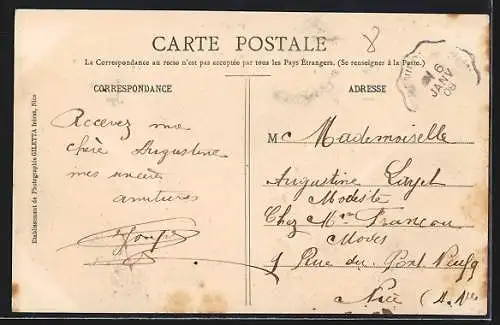 CARTE POSTALE
8
La Correspondance au recto n'est pas acceptée par tous les Pays Étrangers. (Se renseigner à la Poste.)
6
JANV
08
CORRESPONDANCE
ADRESSE
Etablissement de Photographie GILETTA frères, Nice
Recevez ma
chère Augustine
mes sincères
amitiées
M Mademoiselle
Augustine
Modiste
Chez Mme Françou
Modes
1 Rue du Pont Neuf
Nice (A. Mes